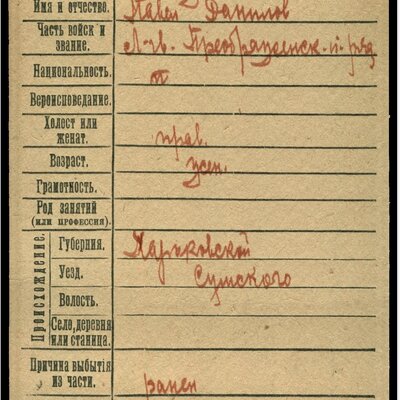 Имя и отчество. Павел Данилов
Часть войск и звание. Л-гв. Преображенск. п. ряд.
Національность.
Вѣроисповѣданіе.
Холост или женат. прав.
Возраст. жен.
Грамотность.
Род занятий (или профессія).
Происхожденіе.
Губернія. Харьковской
Уезд. Сумского
Волость.
Село, деревня или станица.
Причина выбытія из части. ранен